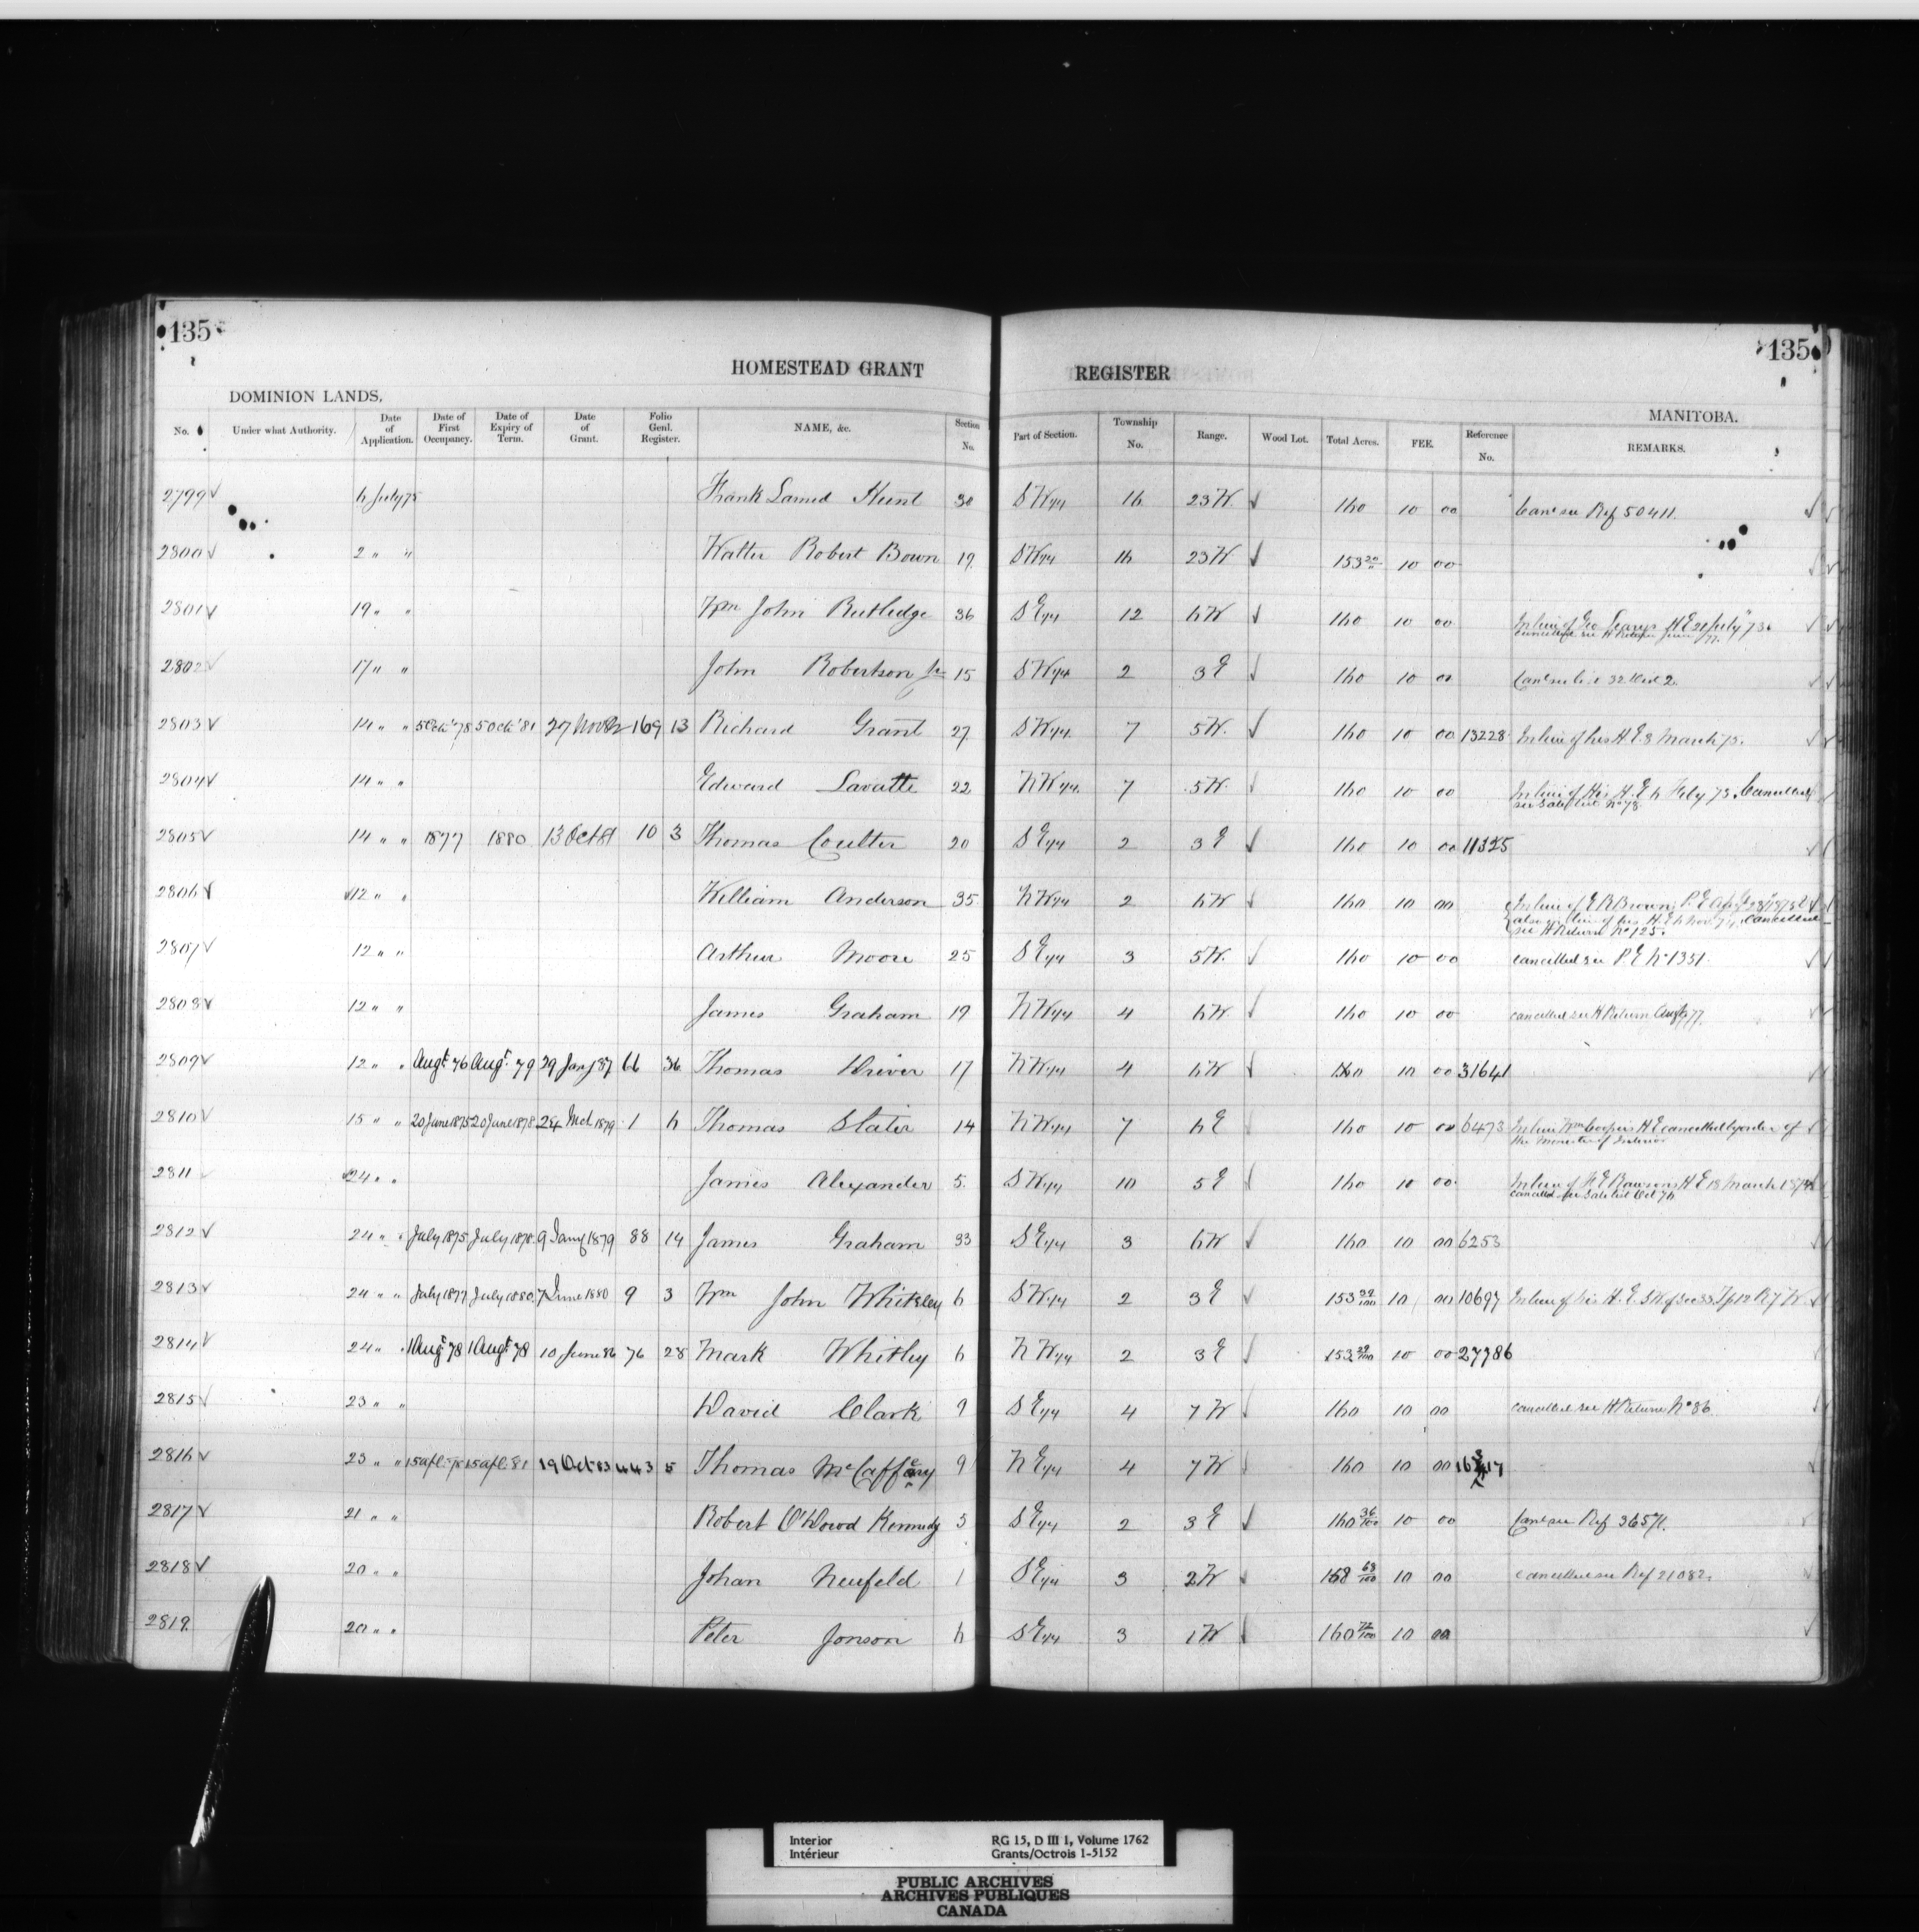 135
135
HOMESTEAD GRANT REGISTER
DOMINION LANDS, MANITOBA.
No. Under what Authority. Date of Application. Date of First Occupancy. Date of Expiry of Term. Date of Grant. Folio Genl. Register. NAME, &c. Section No. Part of Section. Township No. Range. Wood Lot. Total Acres. FEE. Reference No. REMARKS.
2799 6 July 75 Frank Hunt 30 SW 1/4 16 23 W 160 10 00 see Ref 50411.
2800 2 " " Walter Robert Bown 19 SW 1/4 16 23 W 153 10 00
2801 19 " " Wm John Rutledge 36 SE 1/4 12 6 W 160 10 00 In lieu of Geo H E 21 July 73
cancelled see H Return June 77.
2802 17 " " John Robertson Jr 15 SW 1/4 2 3 E 160 10 00
2803 14 " " 5 Oct '78 5 Oct '81 27 Nov 82 169 13 Richard Grant 27 SW 1/4 7 5 W 160 10 00 13228 In lieu of his H. E. 8 March 75.
2804 14 " " Edward Lavatte 22 NW 1/4 7 5 W 160 10 00 In lieu of His H. E. 6 Feby 75. Cancelled
2805 14 " " 1877 1880 13 Oct 81 10 3 Thomas Coulter 20 SE 1/4 2 3 E 160 10 00 11325
2806 12 " " William Anderson 35 NW 1/4 2 6 W 160 10 00 In lieu of E R Brown P. E
also in lieu of his H. E. 6 Nov 74. Cancelled
see H Return No 125.
2807 12 " " Arthur Moore 25 SE 1/4 3 5 W 160 10 00 cancelled see P. E No 1351.
2808 12 " " James Graham 19 NW 1/4 4 6 W 160 10 00 cancelled see H Return Augt 77.
2809 12 " " Augt 76 Augt 79 29 Jany 87 66 36 Thomas Driver 17 NW 1/4 4 6 W 160 10 00 31641
2810 15 " " 20 June 1875 20 June 1878 24 Mch 1879 1 6 Thomas Slater 14 NW 1/4 7 6 E 160 10 00 6473 In lieu Wm Coopers H E cancelled by order of
the Minister of Interior
2811 24 " " James Alexander 5 SW 1/4 10 5 E 160 10 00 In lieu of F. E. Rawsons H E 18 March 1874
2812 24 " " July 1875 July 1878 9 Jany 1879 88 14 James Graham 33 SE 1/4 3 6 W 160 10 00 6253
2813 24 " " July 1877 July 1880 7 June 1880 9 3 Wm John Whiteley 6 SW 1/4 2 3 E 153 29/100 10 00 10697 In lieu of his H. E. SW of Sec 33 Tp 12 R 7 W
2814 24 " " 1 Augt 78 1 Augt 78 10 June 86 76 28 Mark Whitley 6 NW 1/4 2 3 E 153 29/100 10 00 27786
2815 23 " " David Clark 9 SE 1/4 4 7 W 160 10 00 cancelled see H Return No 86
2816 23 " " 15 apl 78 15 apl 81 19 Oct 83 443 5 Thomas McCaffery 9 NE 1/4 4 7 W 160 10 00
2817 21 " " Robert O'Dowd Kennedy 5 SE 1/4 2 3 E 160 36/100 10 00 see Ref 36571.
2818 20 " " Johan Neufeld 1 SE 1/4 3 2 W 158 68/100 10 00 cancelled see Ref 21082.
2819 20 " " Peter Jonson 6 SE 1/4 3 1 W 160 72/100 10 00
Interior RG 15, D III 1, Volume 1762
Intérieur Grants/Octrois 1-5152
PUBLIC ARCHIVES
ARCHIVES PUBLIQUES
CANADA